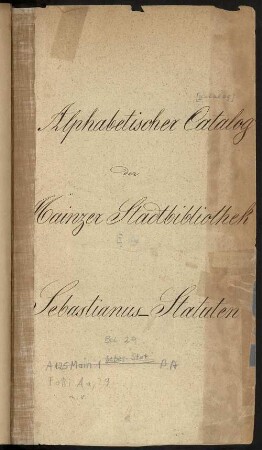 Alphabetischer Catalog
der
Mainzer Stadtbibliothek
Sebastianus_Statuten
Bd. 29
A 125 Main 1